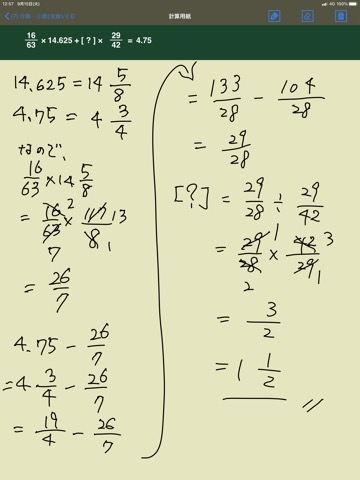 12:57 9月15日(火)
4G 100%
計算用紙
16/63 × 14.625 + [ ? ] × 29/42 = 4.75
14.625 = 14 5/8
4.75 = 4 3/4
なので、
16/63 × 14 5/8
= 16/63 × 117/8 2 7 13 1
= 26/7
4.75 - 26/7
= 4 3/4 - 26/7
= 19/4 - 26/7
= 133/28 - 104/28
= 29/28
[?] = 29/28 ÷ 29/42
= 29/28 × 42/29 1 2 3 1
= 3/2
= 1 1/2